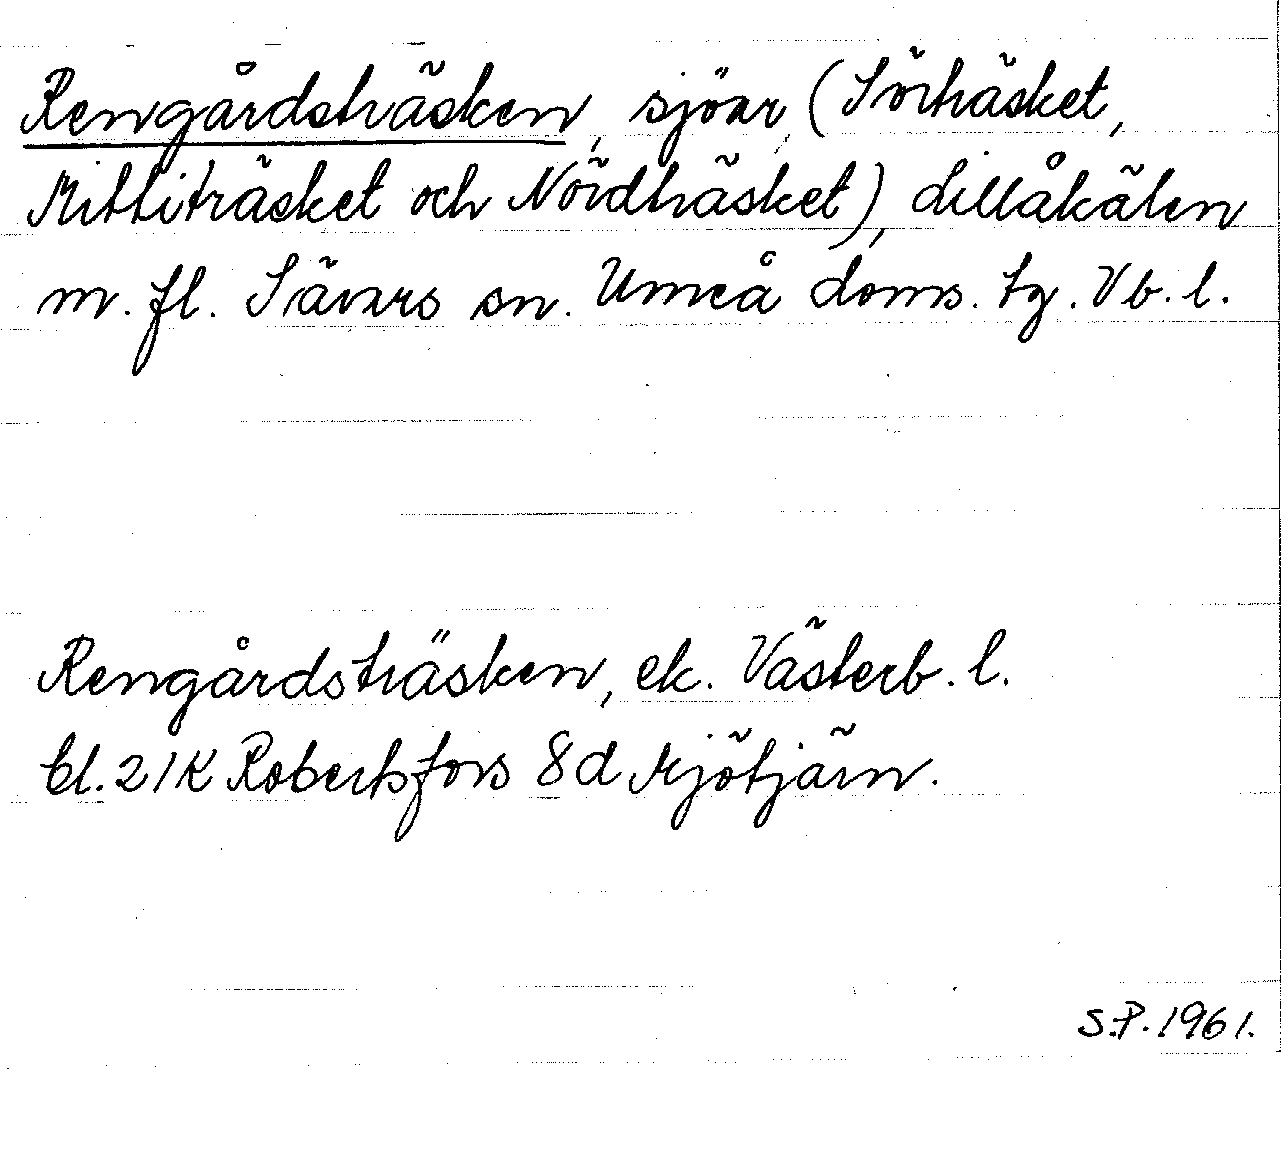 Rengårdsträsken, sjöar, (Sörträsket,
Mittiträsket och Nördträsket), Lillåkälen
m. fl. Sävars sn. Umeå doms. tg. Vb. l.
Rengårdsträsken, ek. Västerb. l.
bl. 21K Robertsfors 8d Mjötjärn.
S.P. 1961.